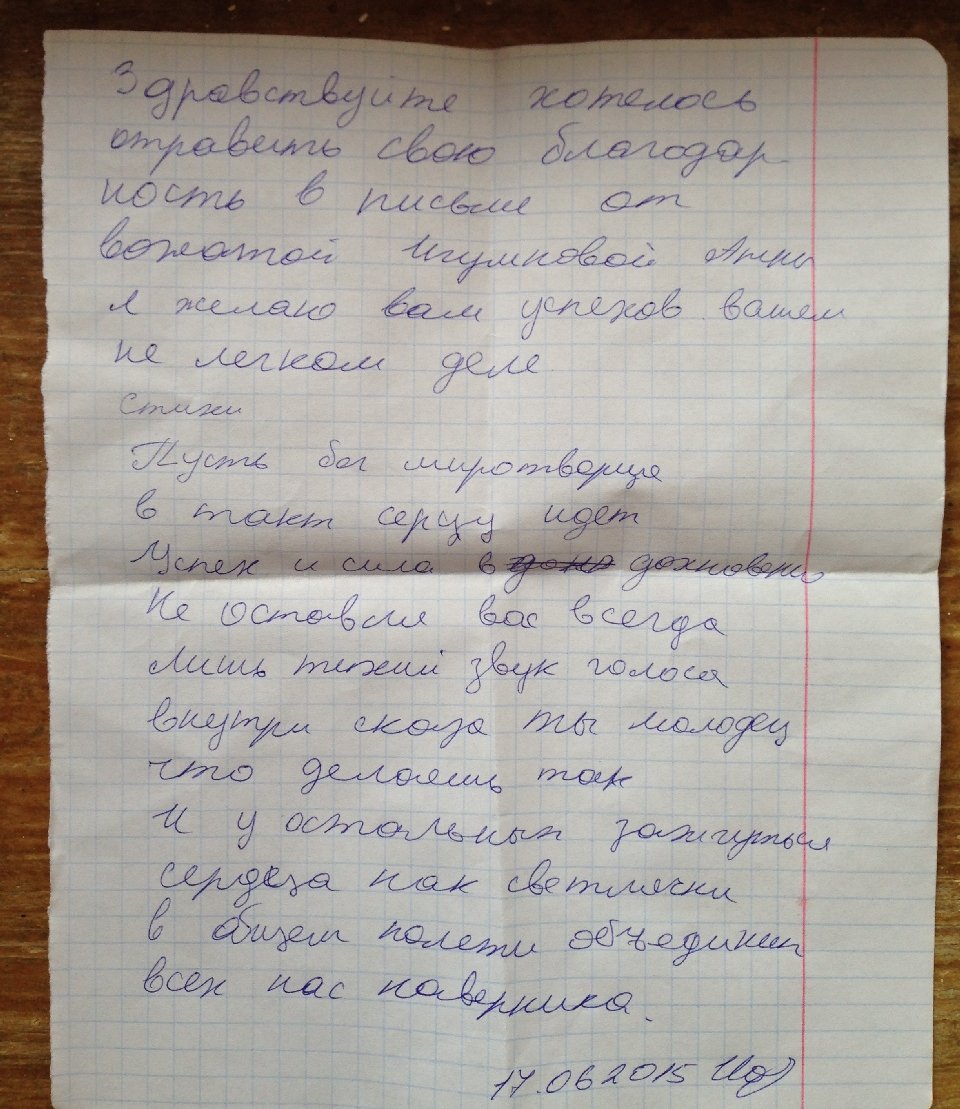 Здравствуйте хотелось
отравить свою благодар-
ность в письме от
вожатой Игумновой Анны
я желаю вам успехов вашем
не легком деле
стихи
Пусть бог миротворца
в такт серцу идет
Успех и сила в дохновение
Не оставля вас всегда
лишь тихий звук голоса
внутри сказа ты молодец
что делаешь так
И у остальных зажгуться
сердеца как светлячки
в общем полети объединит
всех нас наверника.
17.06 2015